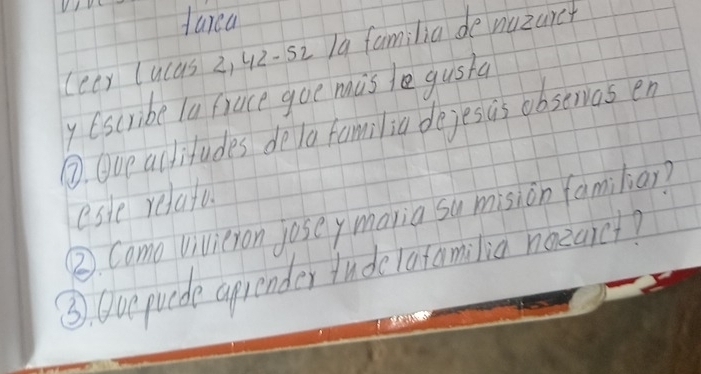 tarea
leer lucas 2,42-52 la familia de nazaret
y escribe la frace que mas te gusta
①. Que actitudes de la familia de jesús observas en
este relato.
②. Como vivieron jose y maria su misión familiar?
③. Que puede aprender tu de la familia nazaret?